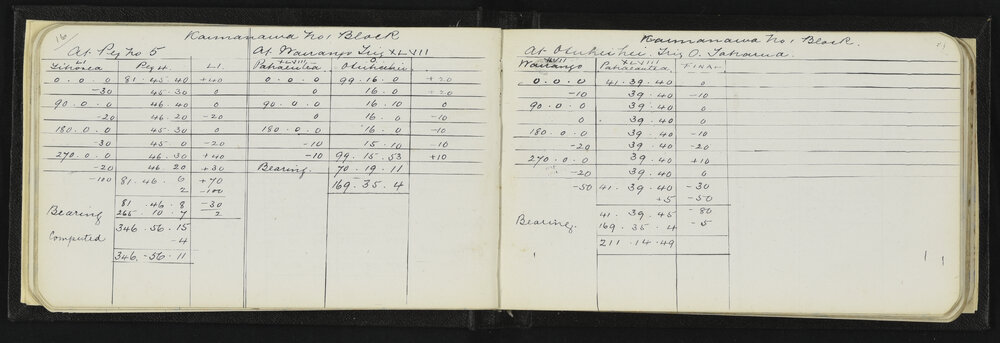 16
Kaimanawa No 1 Block
At Peg No 5 At Wairango Trig XLVII
LI XLVIII O
Peg 4. LI
0. 0. 0 81. 45. 40 +40 0. 0. 0 99. 16. 0 +20
-30 45. 30 0 0 16. 0 +20
90. 0. 0 46. 40 0 90. 0. 0 0 16. 10 0
-20 46. 20 -20 0 16. 0 -10
180. 0. 0 45. 30 0 180. 0. 0 16. 0 -10
-30 45. 0 -20 -10 15. 10 -10
270. 0. 0 46. 30 +40 -10 99. 15. 53 +10
-20 46 20 +30 Bearing 70. 19. 11
-100 81. 46. 6 +70 169. 35. 4
2 -100
81 46. 8 -30
Bearing 265. 10. 7 2
346. 56. 15
Computed -4
346. 56. 11
Kaimanawa No 1 Block.
At Otuheihei. Trig O.
XLVII XLVIII
Wairango FINAL
0. 0. 0 41. 39. 40 0
-10 39. 40 -10
90. 0. 0 39. 40 0
0 39. 40 0
180. 0. 0 39. 40 -10
-20 39. 40 -20
270. 0. 0 39. 40 +10
-20 39. 40 0
-50 41. 39. 40 -30
+5 -50
41. 39. 45 -80
Bearing. 169. 35. 4 -5
211. 14. 49